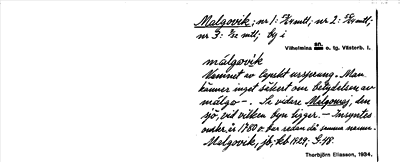 Malgovik; nr 1: Kr mtl; nr 2: Kr mtl;
nr 3: Kr mtl; by i
Vilhelmina sn. o. tg. Västerb. l.
målgovik
Namnet av lapskt ursprung. Man
känner inget säkert om betydelsen av
målgo-. Se vidare Malgomaj, den
sjö, vid vilken byn ligger. – Insyntes
omkr. år 1780 o. bar redan då samma namn.
Malgovik, jb, kb 1929, G. 48.
Thorbjörn Eliasson, 1934.